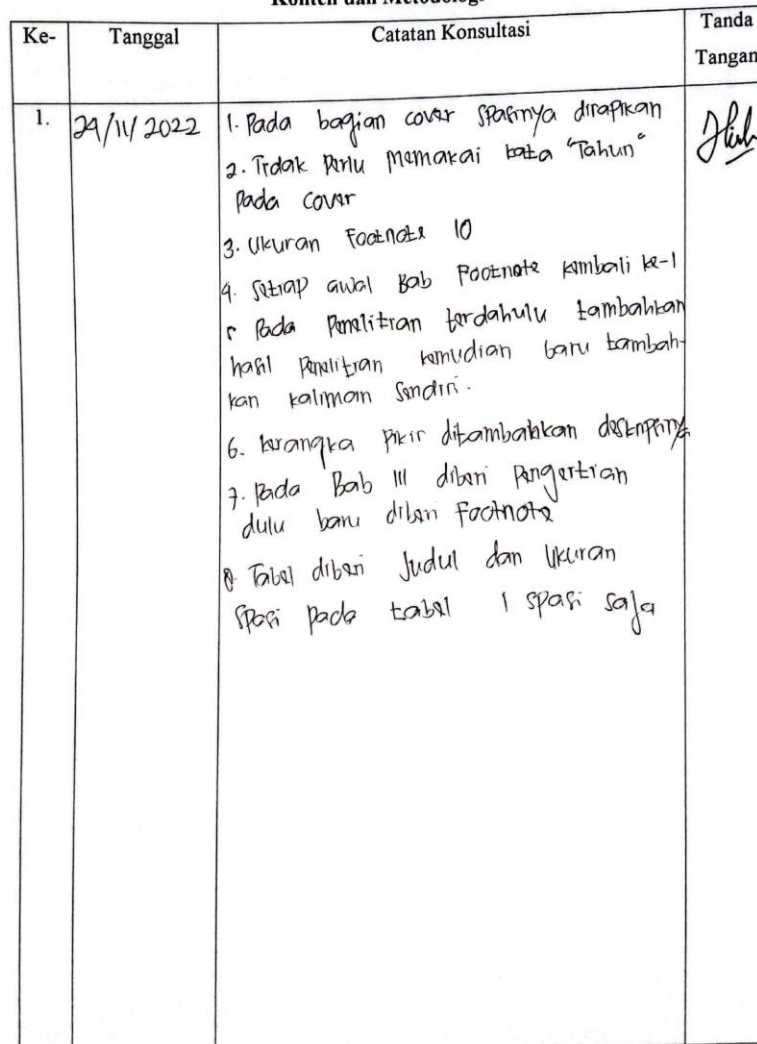 Konten dan Metodologi
Ke-
Tanggal
Catatan Konsultasi
Tanda
Tangan
1.
29/11/2022
1. Pada bagian cover spasinya dirapikan
2. Tidak perlu memakai kata "Tahun"
pada cover
3. Ukuran Footnote 10
4. Setiap awal Bab Footnote kembali ke-1
5 Pada Penelitian terdahulu tambahkan
hasil Penelitian kemudian baru tambah-
kan kaliman sendiri.
6. kerangka Pikir ditambahkan deskripsinya
7. Pada Bab III diberi Pengertian
dulu baru diberi Footnote
8. Tabel diberi Judul dan Ukuran
Spasi pada tabel 1 spasi saja